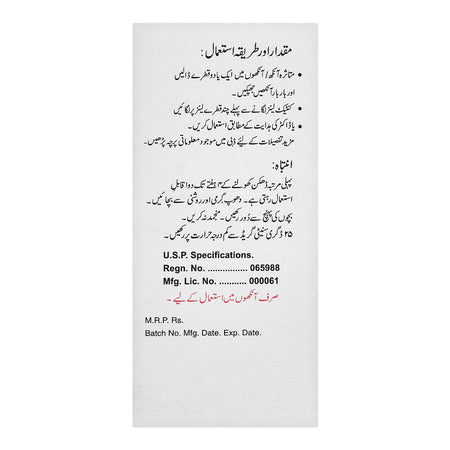 مقدار اور طریقہ استعمال :
• متاثرہ آنکھ/آنکھوں میں ایک یا دو قطرے ڈالیں
اور بار بار آنکھیں جھپکیں۔
• کنٹیکٹ لینز لگانے سے پہلے چند قطرے لینز پر لگائیں
یا ڈاکٹر کی ہدایت کے مطابق استعمال کریں۔
مزید تفصیلات کے لیئے ڈبی میں موجود معلوماتی پرچہ پڑھیں۔
انتباہ :
پہلی مرتبہ ڈھکن کھولنے کے ۴ ہفتے تک دوا قابلِ
استعمال رہتی ہے۔ دھوپ، گرمی اور روشنی سے بچائیں۔
بچوں کی پہنچ سے دُور رکھیں۔ منجمد نہ کریں۔
۲۵ ڈگری سینٹی گریڈ سے کم درجہ حرارت پر رکھیں۔
U.S.P. Specifications.
Regn. No. ................ 065988
Mfg. Lic. No. ........... 000061
صرف آنکھوں میں استعمال کے لیے ۔
M.R.P. Rs.
Batch No. Mfg. Date. Exp. Date.